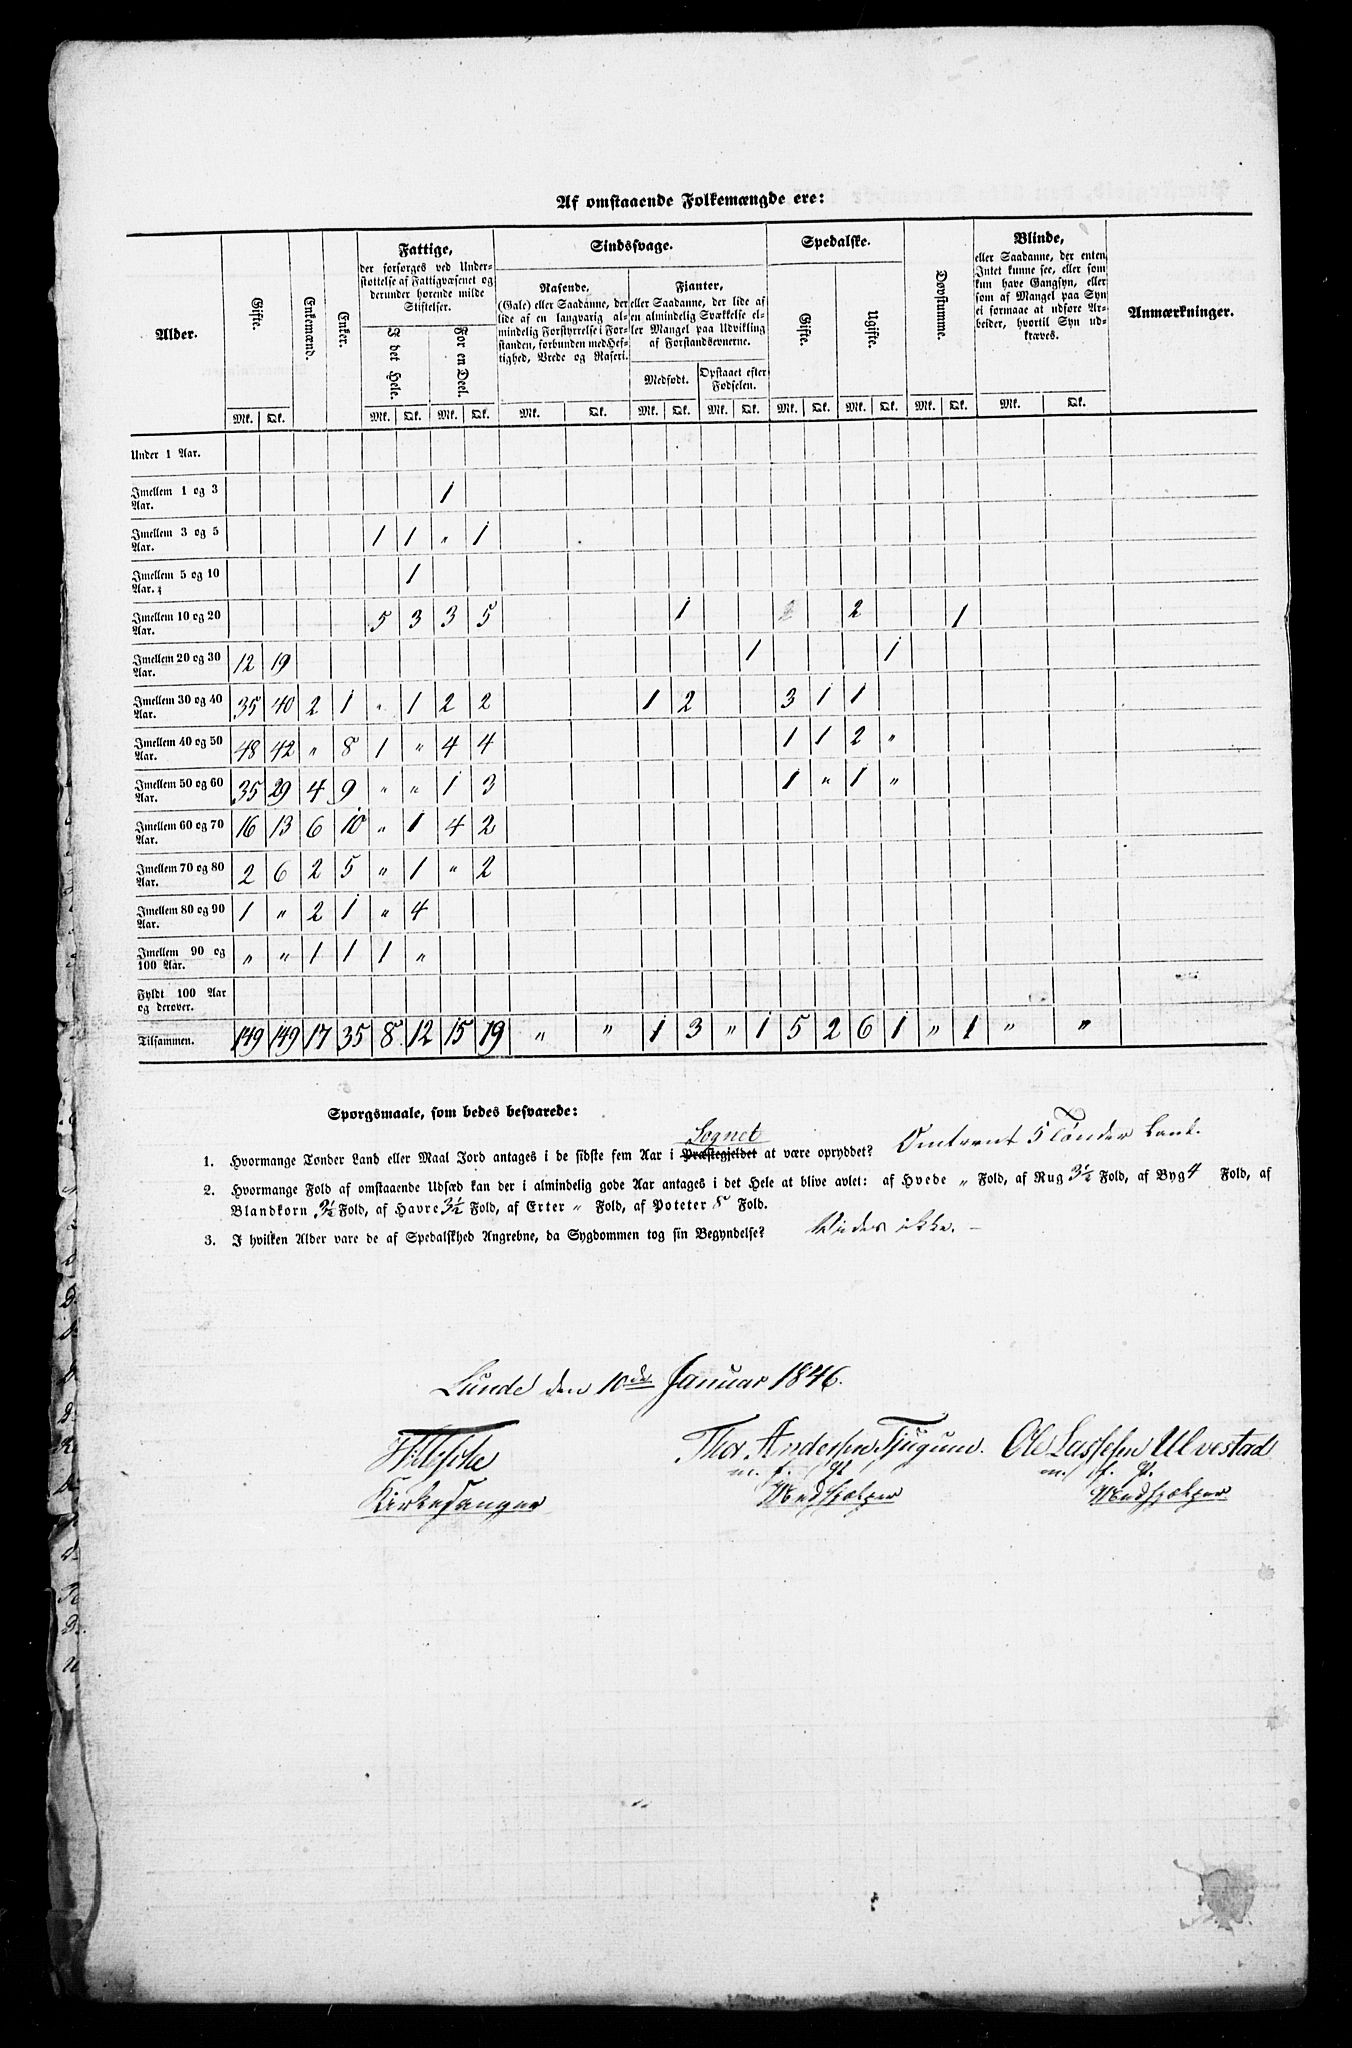 Af omstaaende Folkemængde ere:
Alder.
Gifte.
Enkemænd.
Enker.
Fattige,
der forsørges ved Under-
støttelse af Fattigvæsenet og
derunder hørende milde
Stiftelser.
I det Hele.
For en Deel.
Sindssvage.
Rasende,
(Gale) eller Saadanne, der
lide af en langvarig al-
mindelig Forstyrrelse i For-
standen, forbunden med Hef-
tighed, Vrede og Raseri.
Fianter,
eller Saadanne, der lide af
en almindelig Svækkelse el-
ler Mangel paa Udvikling
af Forstandsevnerne.
Medfødt.
Opstaaet efter
Fødselen.
Spedalske.
Gifte.
Ugifte.
Døvstumme.
Blinde,
eller Saadanne, der enten
Intet kunne see, eller som
kun have Gangsyn, eller
som af Mangel paa Syn
ei formaae at udføre Ar-
beider, hvortil Syn ud-
kræves.
Anmærkninger.
Mk. Qk. Mk. Qk. Mk. Qk. Mk. Qk. Mk. Qk. Mk. Qk. Mk. Qk. Mk. Qk. Mk. Qk. Mk. Qk.
Under 1 Aar.
Imellem 1 og 3 Aar. 1
Imellem 3 og 5 Aar. 1 1 " 1
Imellem 5 og 10 Aar. 1
Imellem 10 og 20 Aar. 5 3 3 5 1 2 1
Imellem 20 og 30 Aar. 12 19 1 1
Imellem 30 og 40 Aar. 35 40 2 1 " 1 2 2 1 2 3 1 1
Imellem 40 og 50 Aar. 48 42 " 8 1 " 4 4 1 1 2 "
Imellem 50 og 60 Aar. 35 29 4 9 " " 1 3 1 " 1 "
Imellem 60 og 70 Aar. 16 13 6 10 " 1 4 2
Imellem 70 og 80 Aar. 2 6 2 5 " 1 " 2
Imellem 80 og 90 Aar. 1 " 2 1 " 4
Imellem 90 og 100 Aar. " " 1 1 1 "
Fyldt 100 Aar og derover.
Tilsammen. 149 149 17 35 8 12 15 19 " " 1 3 " 1 5 2 6 1 " 1 " "
Spørgsmaale, som bedes besvarede:
Sognet
1. Hvormange Tønder Land eller Maal Jord antages i de sidste fem Aar i Præstegjeldet at være opryddet? Omtrent 5 Tønder Land.
2. Hvormange Fold af omstaaende Udsæd kan der i almindelig gode Aar antages i det Hele at blive avlet: af Hvede " Fold, af Rug 3½ Fold, af Byg 4 Fold, af
Blandkorn 3½ Fold, af Havre 3½ Fold, af Erter " Fold, af Poteter 8 Fold.
3. I hvilken Alder vare de af Spedalskhed Angrebne, da Sygdommen tog sin Begyndelse? Vides ikke. –
Lunde den 10de Januar 1846.
Kirkesanger
Thor Andersen Tjugum. Ole Lassesen Ulvestad
m. f. P. m. f. P.
Medhjælper Medhjælper